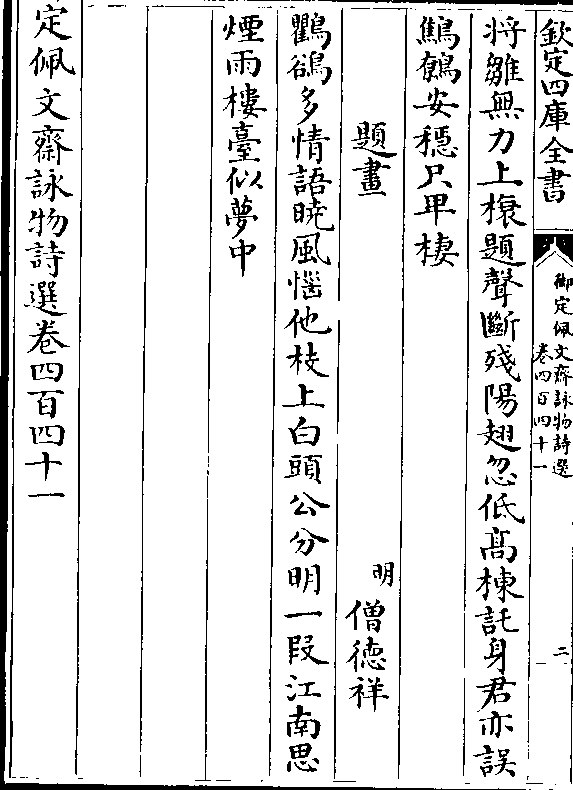 欽定四庫全書
御定佩文齋詠物詩選
卷四百四十一
二
將雛無力上榱題聲斷殘陽翅忽低高棟託身君亦誤
鷦鷯安穩只卑棲
題畫
明
僧德祥
鸜鵒多情語曉風惱他枝上白頭公分明一段江南思
煙雨樓臺似夢中
定佩文齋詠物詩選卷四百四十一